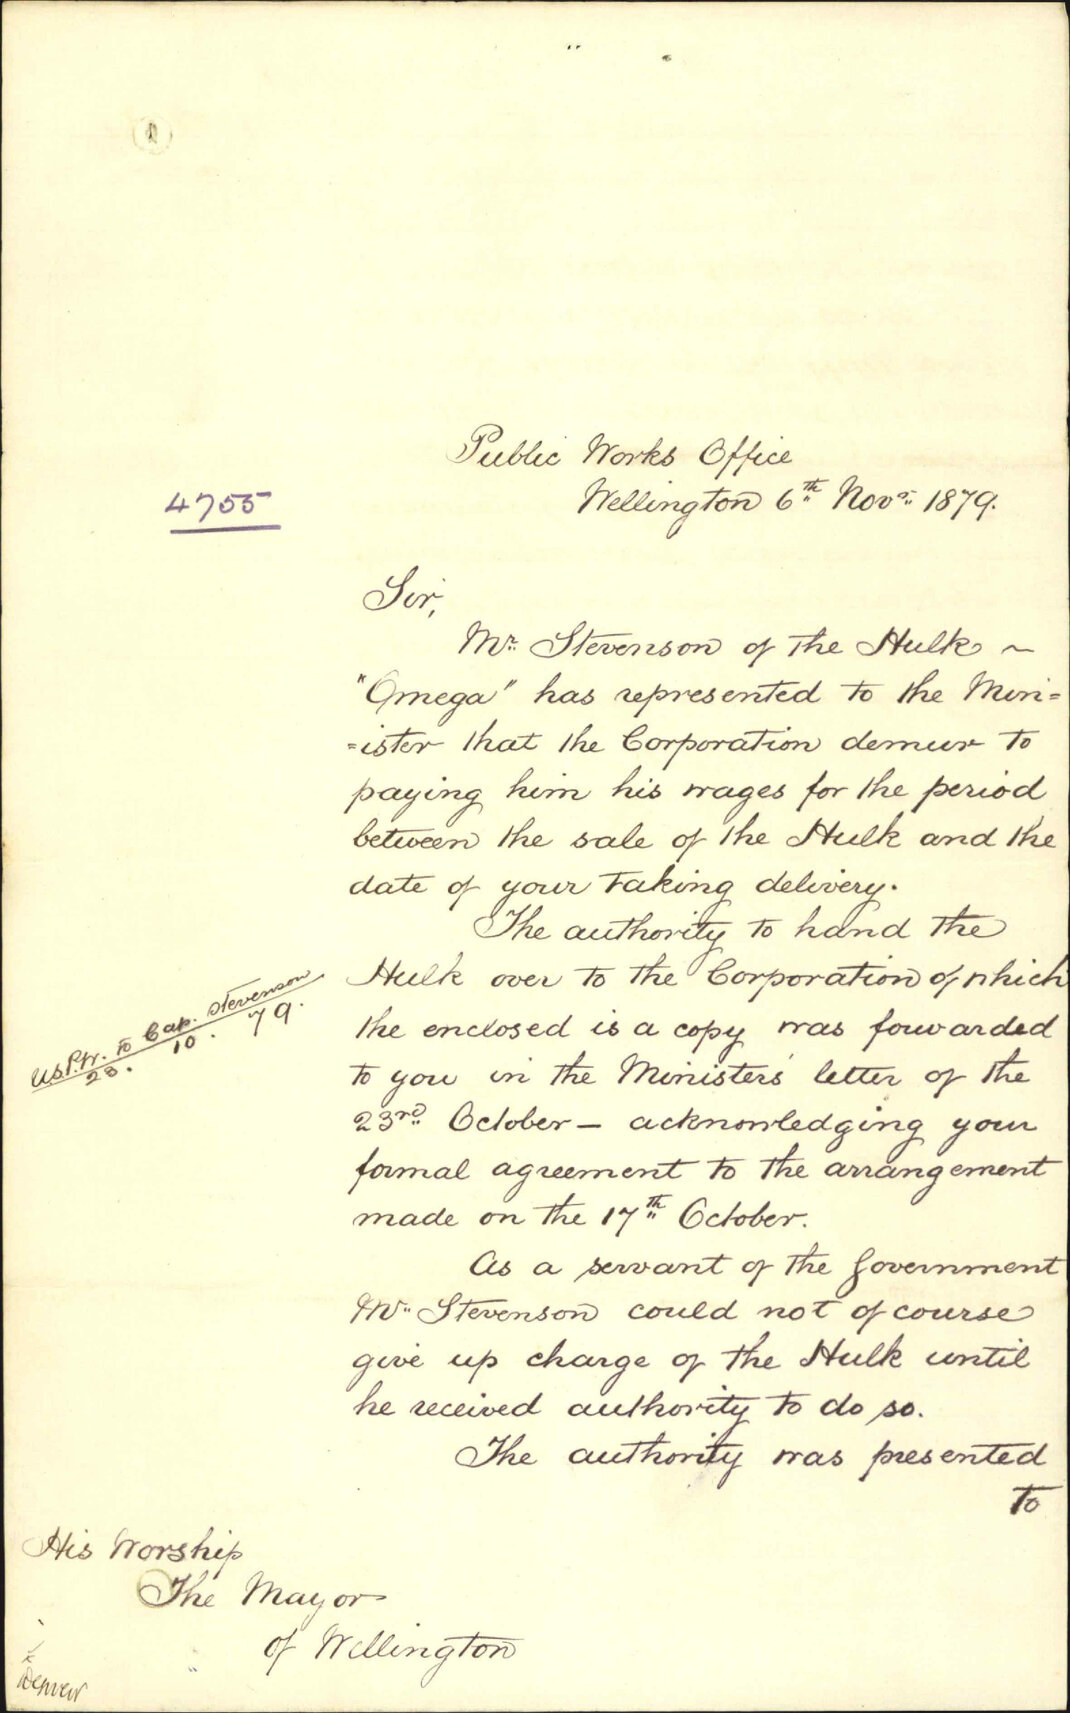 Public Works Office
4755
Wellington 6th Novr. 1879.
Sir,
Mr. Stevenson of the Hulk ~
"Omega" has represented to the Min=
=ister that the Corporation demur to
paying him his wages for the period
between the sale of the Hulk and the
date of your taking delivery.
The authority to hand the
Hulk over to the Corporation of which
the enclosed is a copy was forwarded
to you in the Ministers' letter of the
23rd October — acknowledging your
formal agreement to the arrangement
made on the 17th October.
U.S.P.W. to Cap. Stevenson
23. 10. 79.
As a servant of the Government
Mr. Stevenson could not of course
give up charge of the Hulk until
he received authority to do so.
The authority was presented
to
His Worship
The Mayor
of Wellington